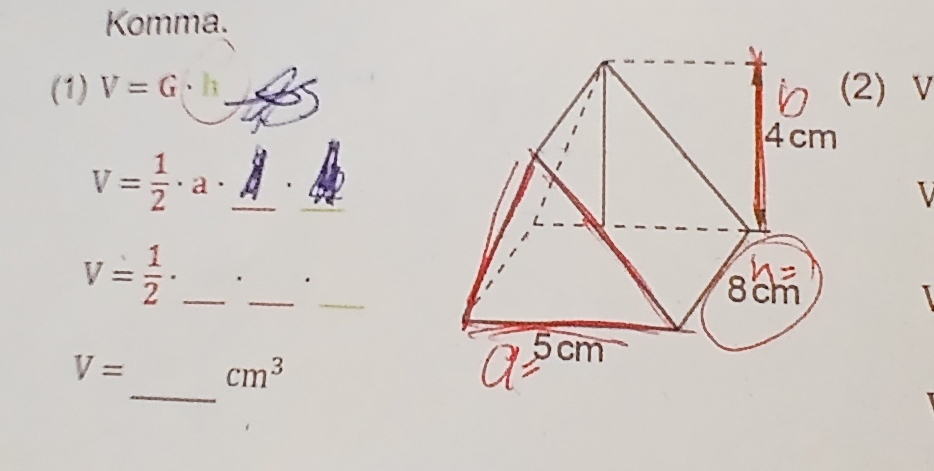 Komma.
(1) V = G · h
V = 1/2 · a · __ · __
V = 1/2 · __ · __ · __
V = ____ cm³
b
4 cm
h =
8 cm
a =
5 cm
(2) V
V
V
V